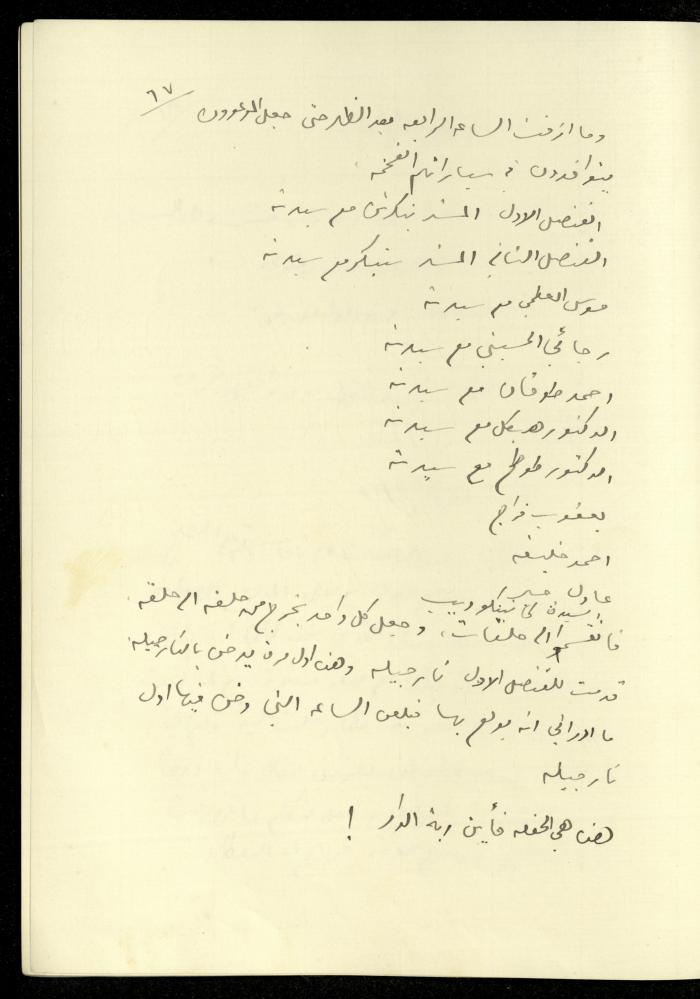 ٦٧
وما ازفت الساعه الرابعه بعد الظهر حتى جعل المدعوون
يتوافدون في سياراتهم الفخمه
القنصل الاول المستر بنكرتن مع سيدته
القنصل الثاني المستر ستبلر مع سيدته
موسى العلمي مع سيدته
رجائي الحسيني مع سيدته
احمد طوقان مع سيدته
الدكتور هيكل مع سيدته
الدكتور طوطح مع سيدته
يعقوب فراج
احمد خليفه
عادل جبر
السيدة
فانقسموا الى حلقات، وجعل كل واحد يخرج من حلقه الى حلقه
قدمت للقنصل الاول نارجيله وهذه اول مرة يدخن بالنارجيله
ما ادراني انه يولع بها فيلعن الساعه التي دخن فيها اول
نارجيله
هذه هي الحفله فأين ربة الدار !